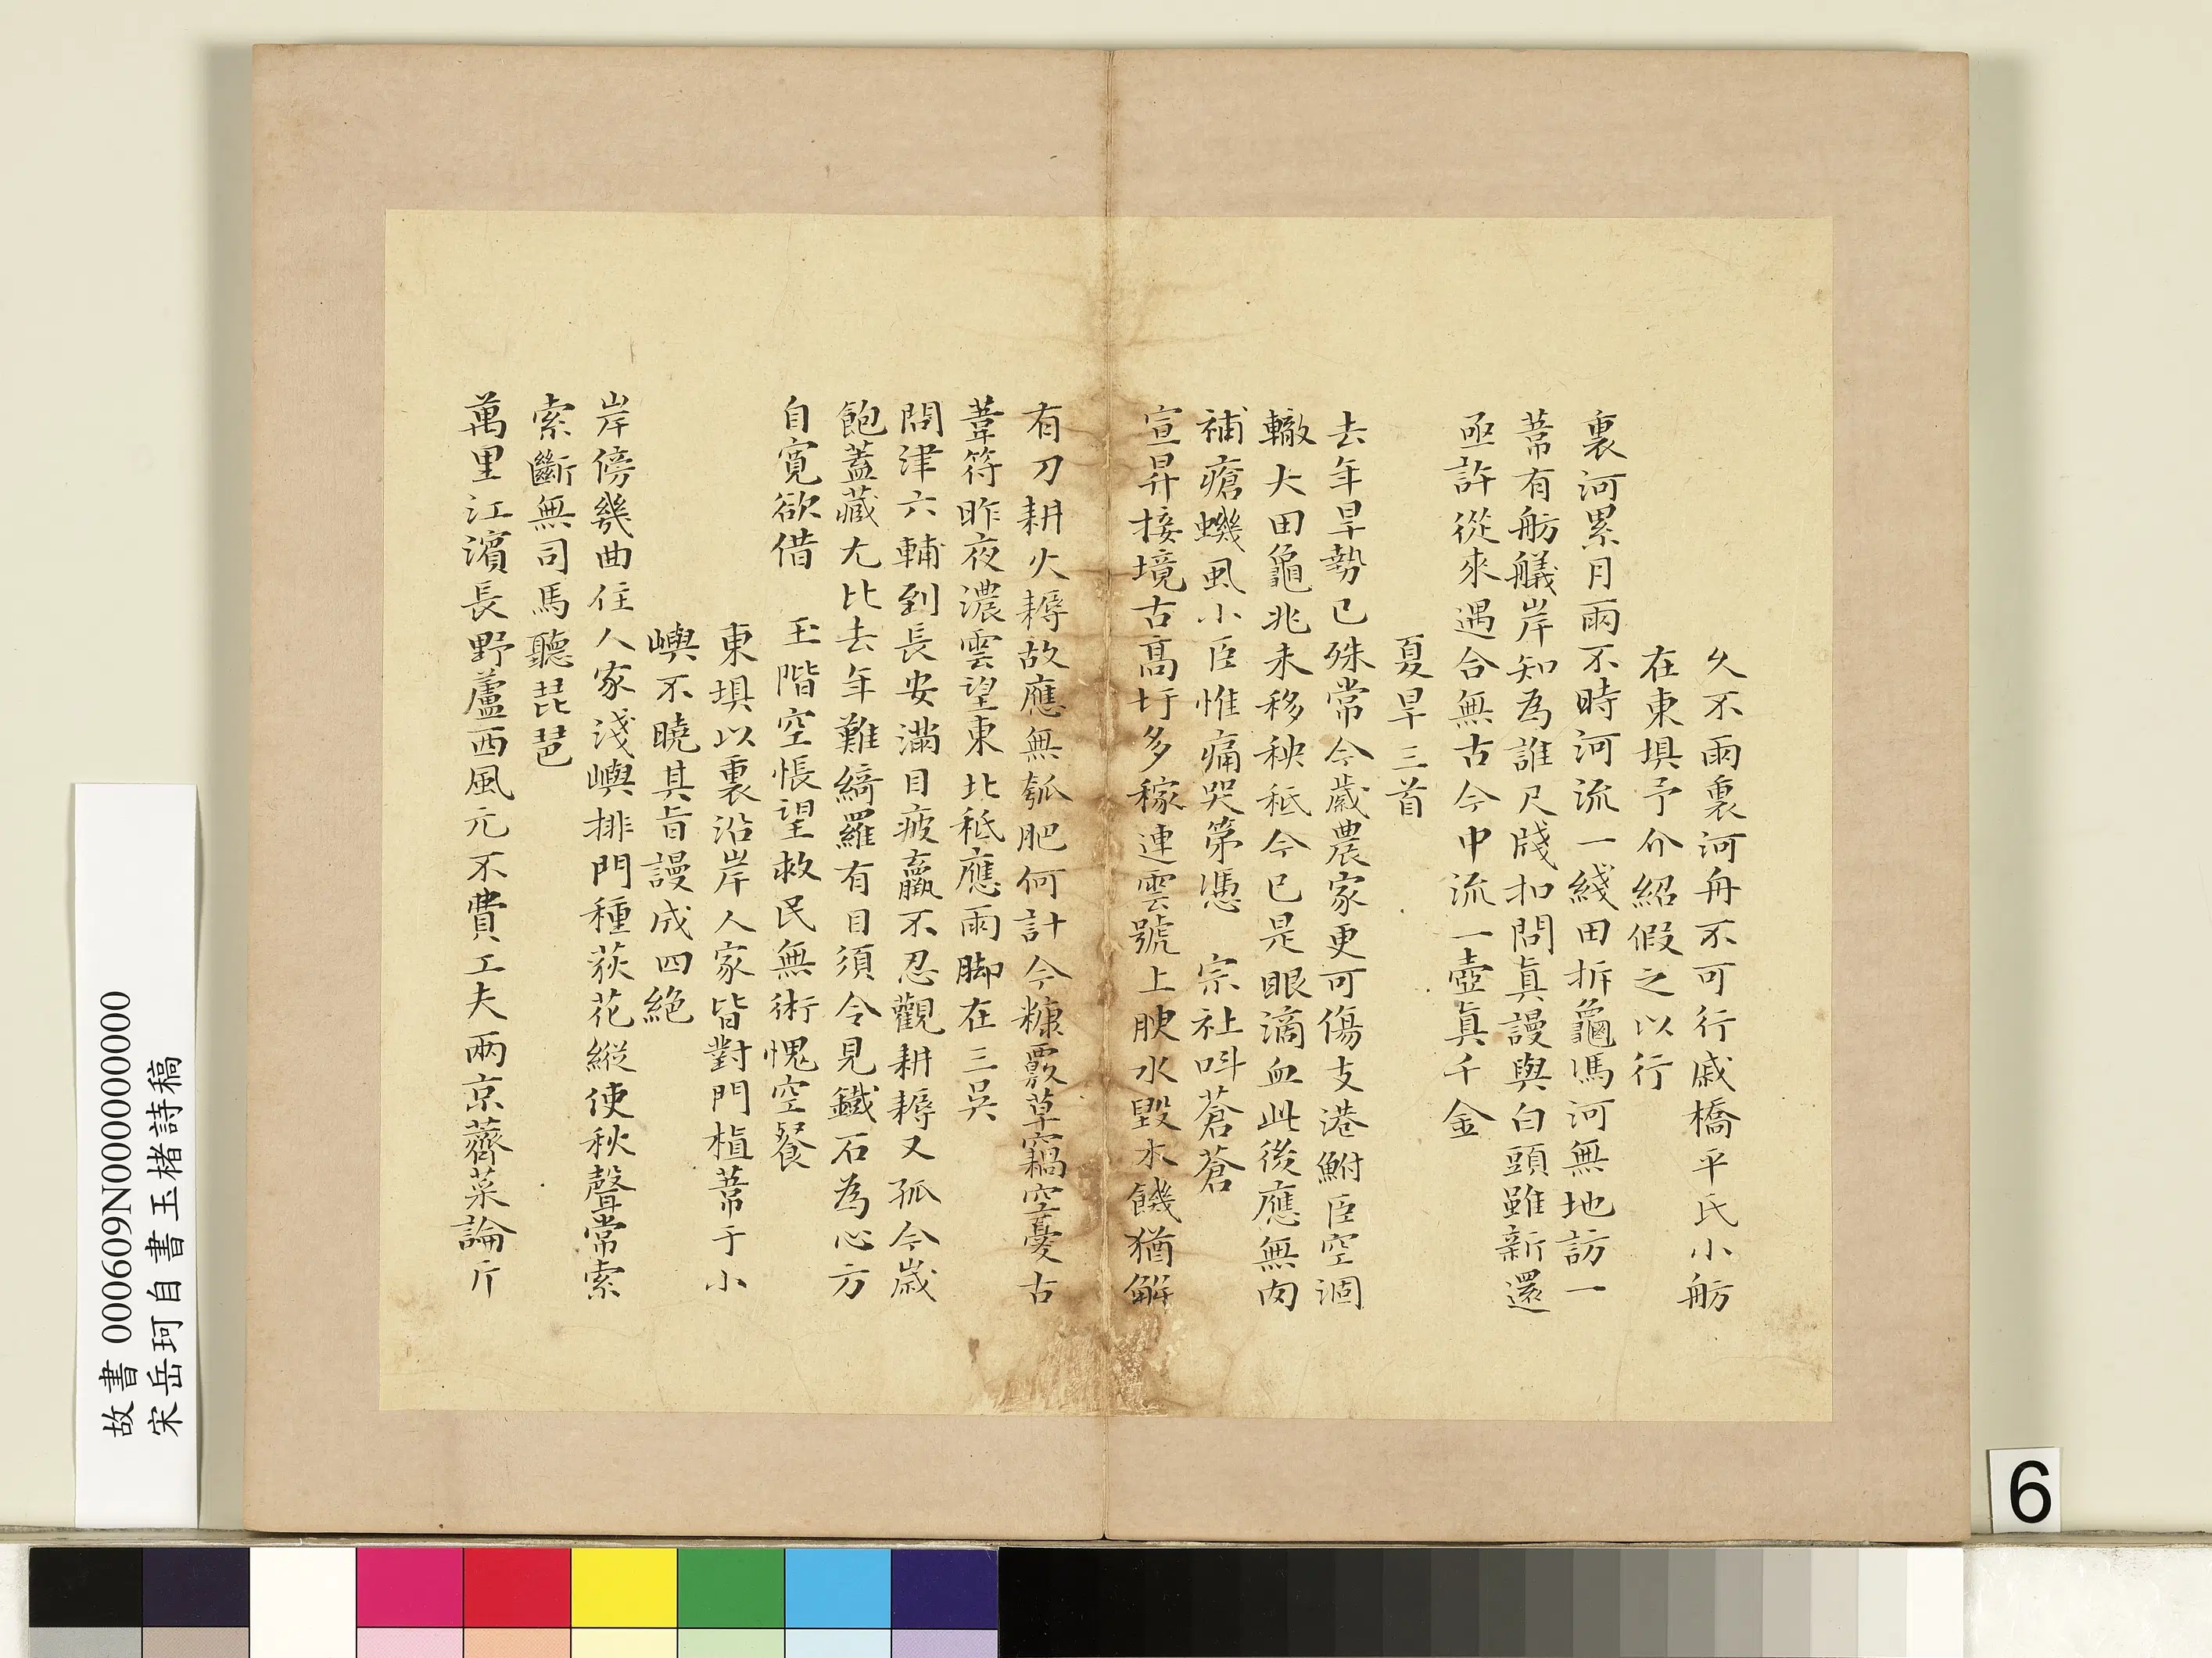 久不雨裏河舟不可行戚橋平氏小舫
在東埧予介紹假之以行
裏河累月雨不時河流一綫田拆龜馮河無地訪一
葦有舫艤岸知為誰尺牋扣問真謾與白頭雖新還
亟許從來遇合無古今中流一壺真千金
夏旱三首
去年旱勢已殊常今歲農家更可傷支港鮒臣空涸
轍大田龜兆未移秧秪今已是眼滴血此後應無肉
補瘡蟣虱小臣惟痛哭第憑 宗社呌蒼蒼
宣昇接境古高圩多稼連雲號上腴水毀木饑猶解
有刀耕火耨故應無瓠肥何計今糠覈草竊空憂古
葦符昨夜濃雲望東北秪應雨脚在三吳
問津六輔到長安滿目疲羸不忍觀耕耨又孤今歲
飽蓋藏尤比去年難綺羅有目須令見鐵石為心方
自寛欲借 玉階空悵望救民無術愧空餐
東埧以裏沿岸人家皆對門植葦于小
嶼不曉其旨謾成四絶
岸傍幾曲住人家淺嶼排門種荻花縱使秋聲常索
索斷無司馬聽琵琶
萬里江濱長野蘆西風元不費工夫兩京薺菜論斤
故書 000609N000000000
宋岳珂自書玉楮詩稿
6